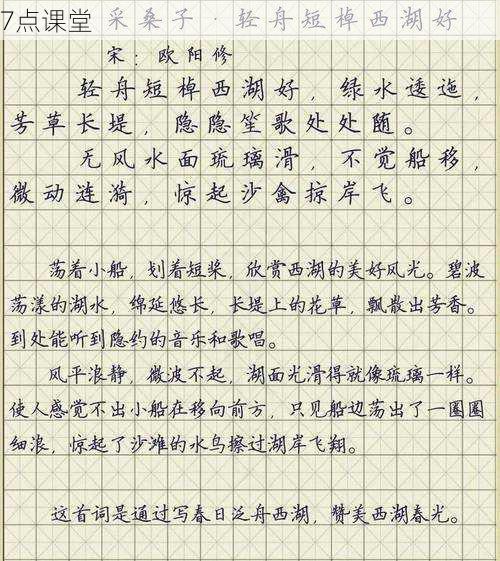 7点课堂
采桑子·轻舟短棹西湖好
宋：欧阳修
轻舟短棹西湖好，绿水逶迤，
芳草长堤，隐隐笙歌处处随。
无风水面琉璃滑，不觉船移，
微动连漪，惊起沙禽掠岸飞。
荡着小船，划着短桨，欣赏西湖的美好风光。碧波
荡漾的湖水，绵延悠长，长堤上的花草，飘散出芳香。
到处能听到隐约的音乐和歌唱。
风平浪静，微波不起，湖面光滑得就像琉璃一样。
使人感觉不出小船在移向前方，只见船边荡出了一圈圈
细浪，惊起了沙滩的水鸟擦过湖岸飞翔。
这首词是通过写春日泛舟西湖，赞美西湖春光。